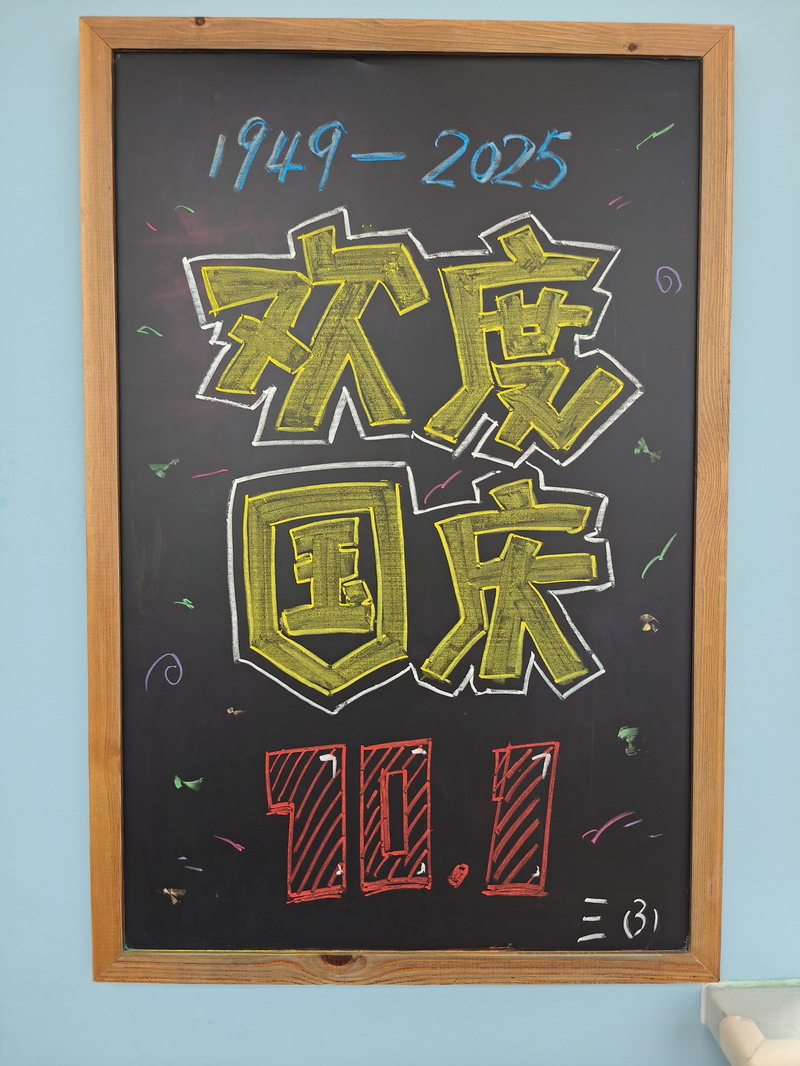 1949—2025
欢度
国庆
10.1
三(3)